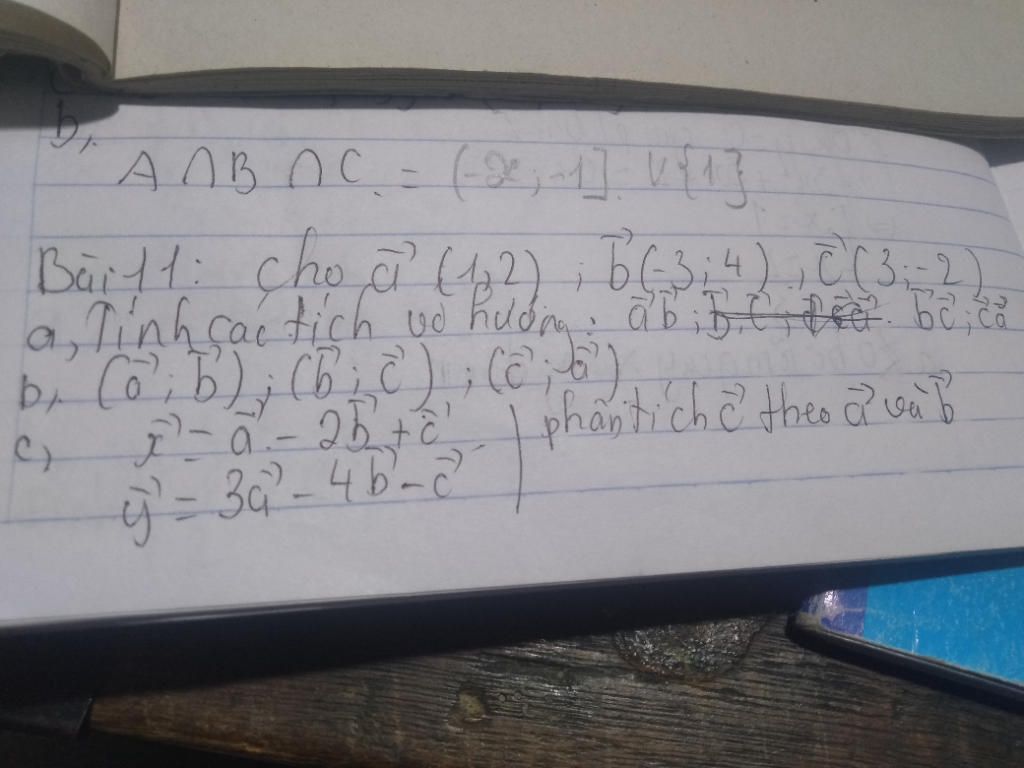 b,
A ∩ B ∩ C = (-∞; -1] ∪ {1}
Bài 11: Cho a⃗ (1,2) ; b⃗ (-3; 4) ; c⃗ (3; -2)
a, Tính các tích vô hướng: a⃗ b⃗ ; b⃗ c⃗ ; c⃗ a⃗
b, (a⃗ ; b⃗) ; (b⃗ ; c⃗) ; (c⃗ ; a⃗)
c, x⃗ = a⃗ - 2b⃗ + c⃗ | phân tích c⃗ theo a⃗ và b⃗
y⃗ = 3a⃗ - 4b⃗ - c⃗